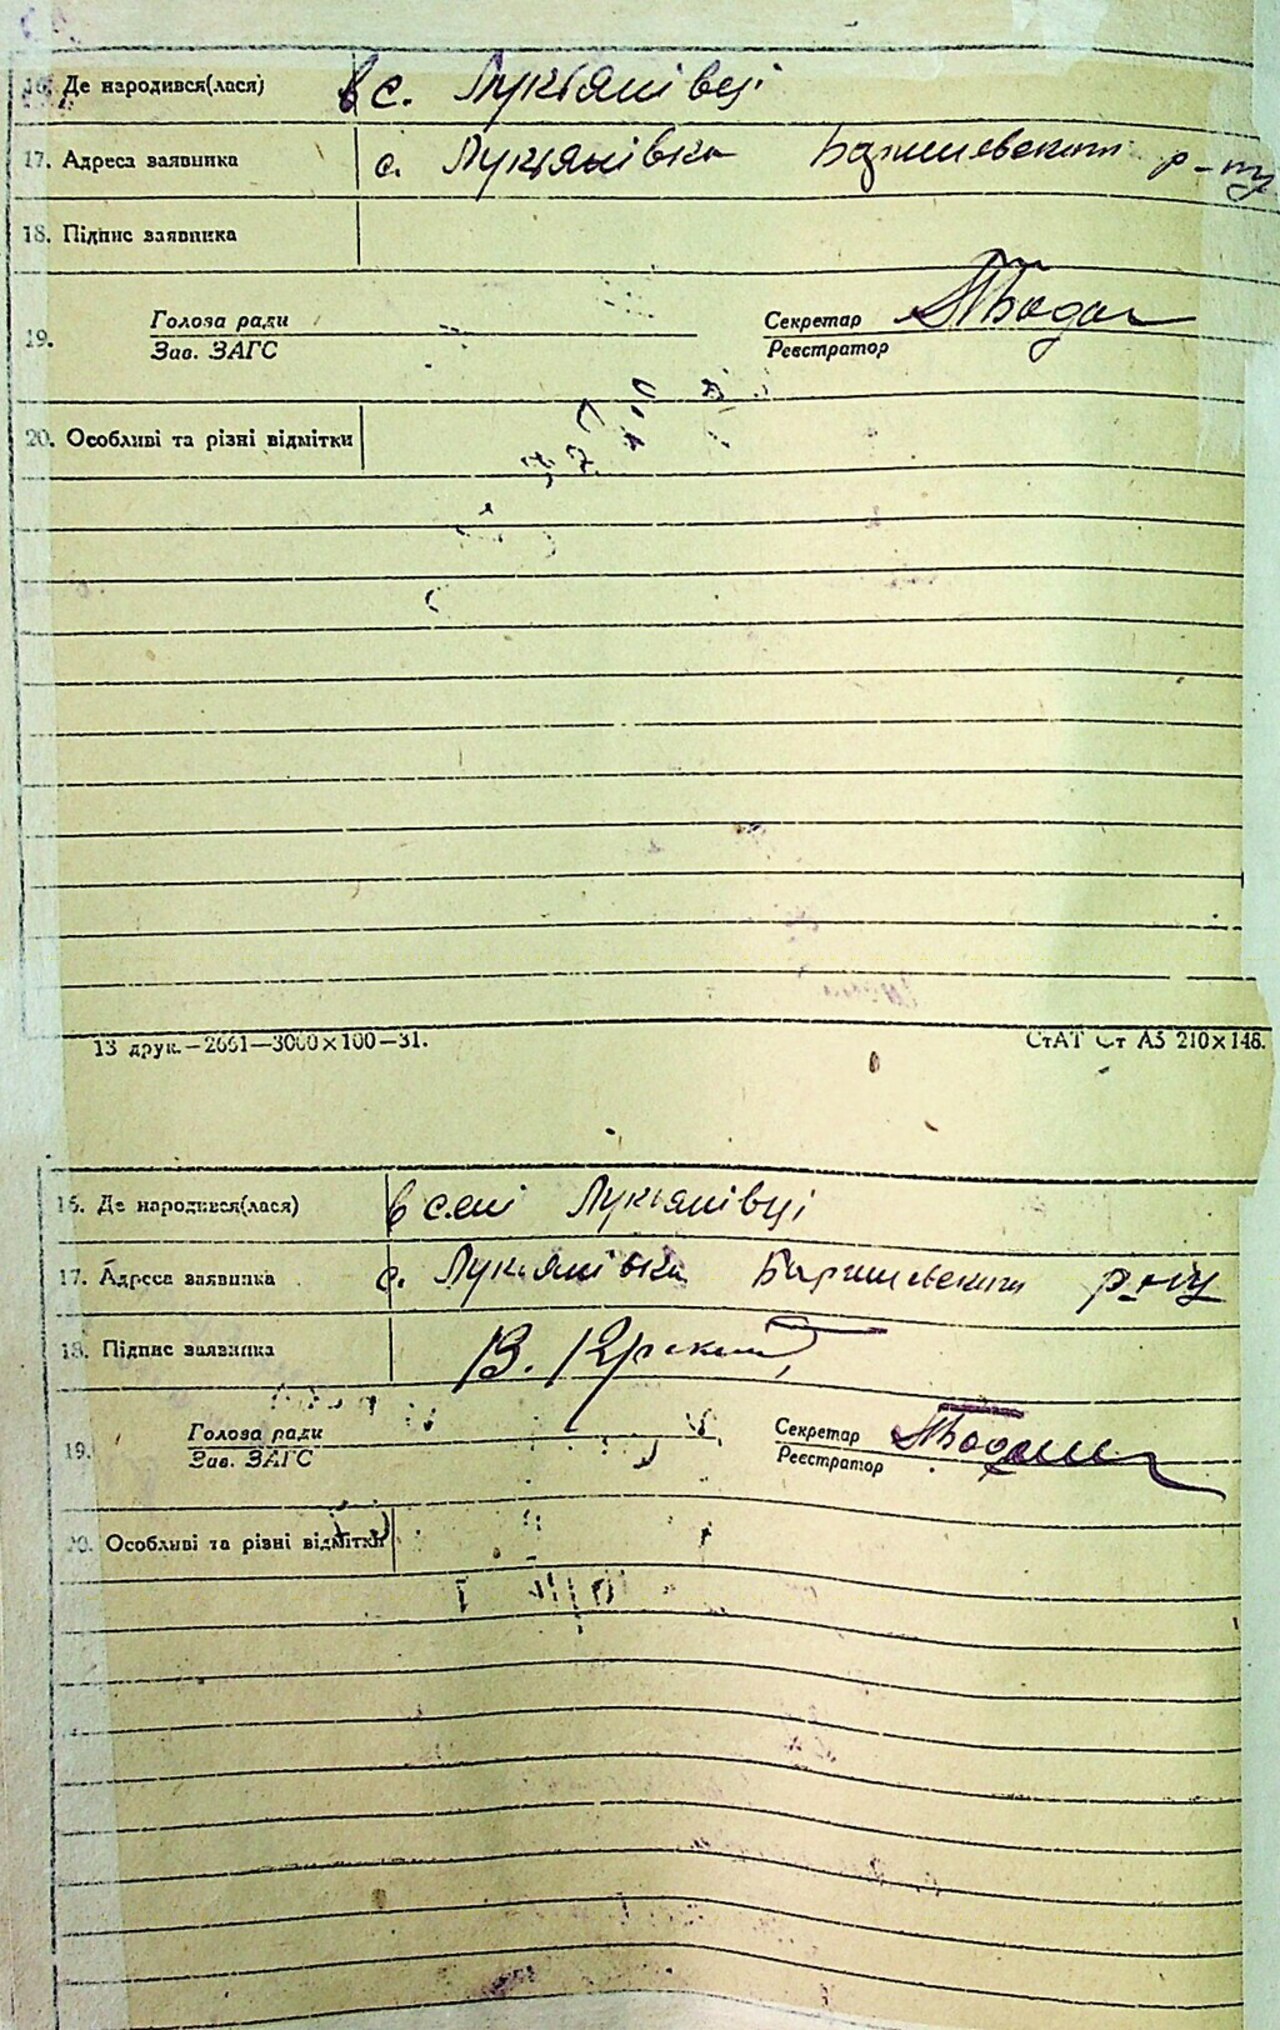 16. Де народився(лася) в с. Лукіянівці
17. Адреса заявника с. Лукіянівка Баришевського р-ну
18. Підпис заявника
19. Голова ради
Зав. ЗАГС
Секретар
Реєстратор
20. Особливі та різні відмітки
13 друк.—2661—3000×100—31.
СтАТ Ст А5 210×148.
16. Де народився(лася) в селі Лукіянівці
17. Адреса заявника с. Лукіянівка Баришевського р-ну
18. Підпис заявника В.
19. Голова ради
Зав. ЗАГС
Секретар
Реєстратор
20. Особливі та різні відмітки